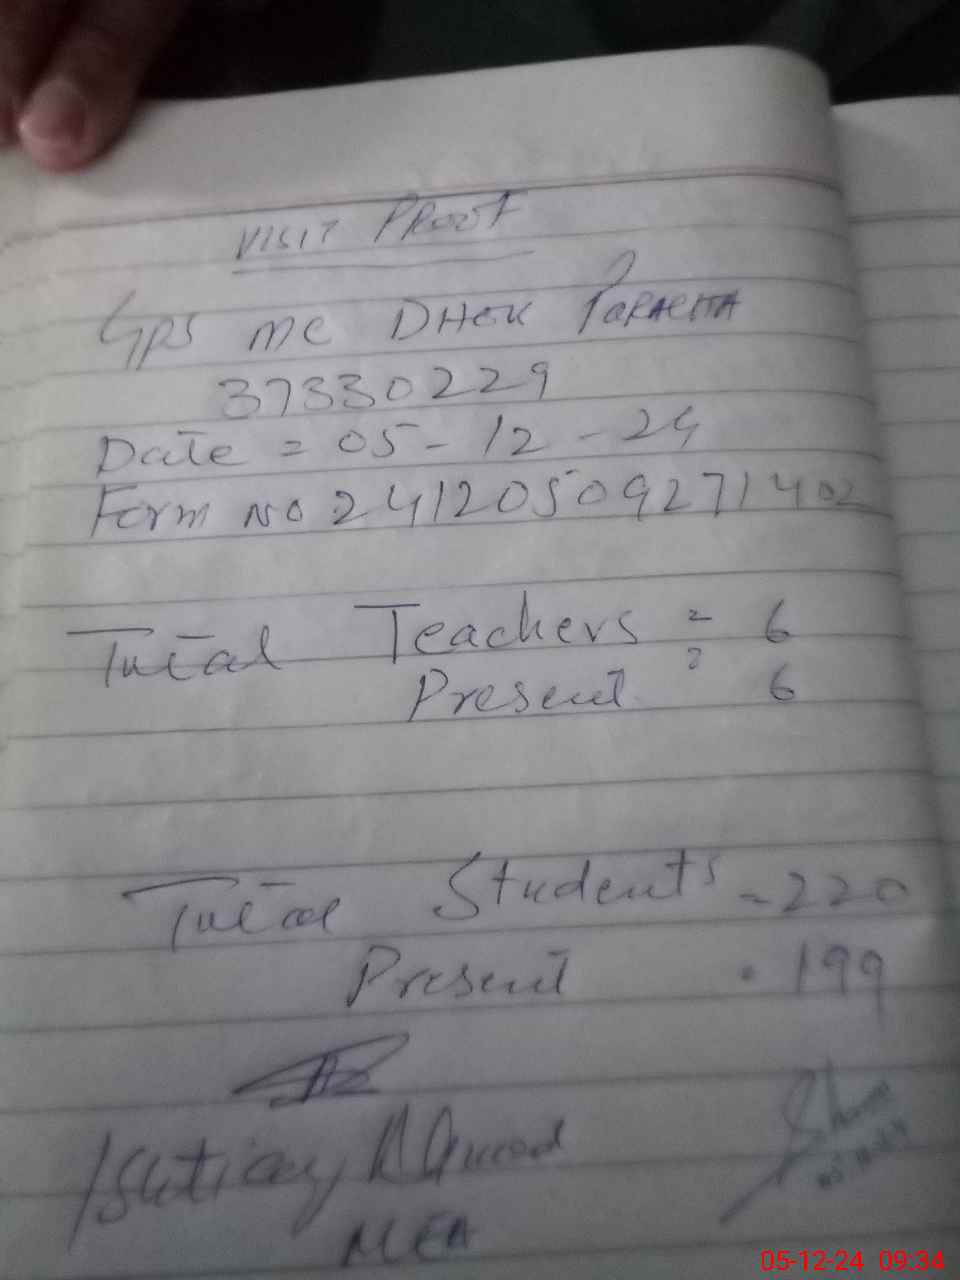 VISIT PROOF
GPS MC DHOK PARACHA
37330229
Date = 05-12-24
Form NO 24120509271402
Total Teachers = 6
Present = 6
Total Students = 220
Present . 199
Ishtiaq Ahmad
MEA
05-12-24 09:34